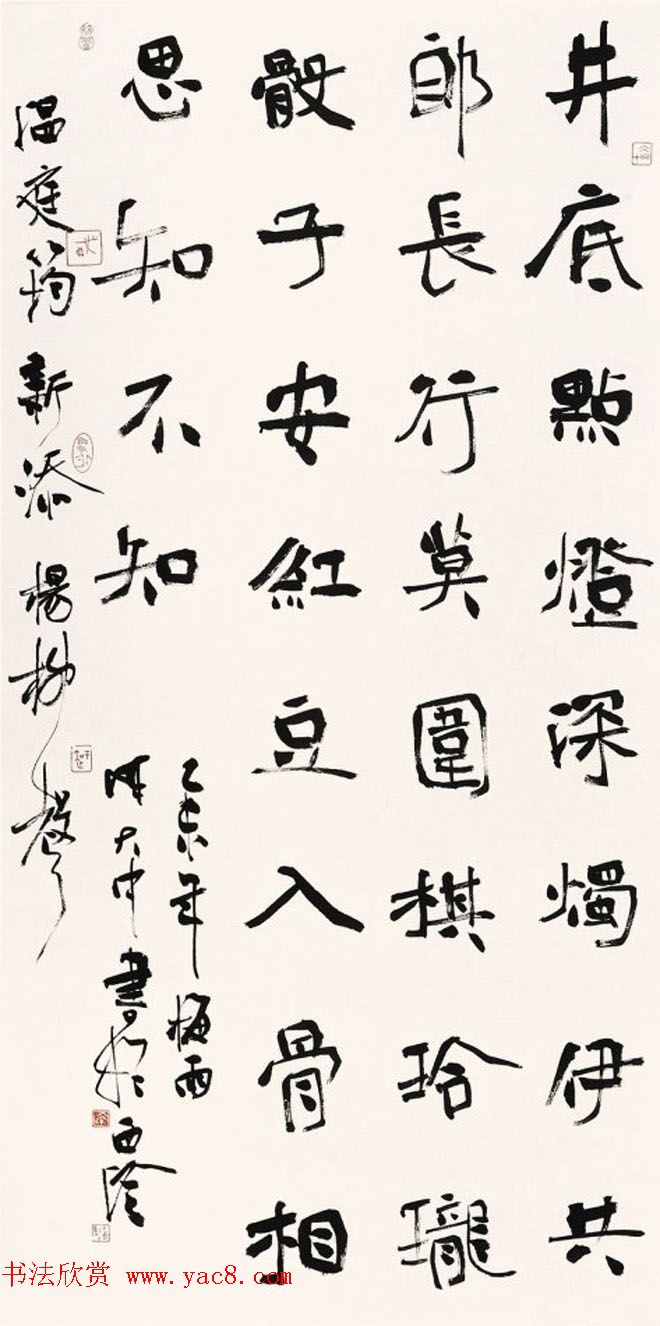 井底點燈深燭伊共
郎長行莫圍棋玲瓏
骰子安紅豆入骨相
思知不知
乙未年梅雨
陳大中書於西泠
温庭筠新添楊柳聲
书法欣赏 www.yac8.com